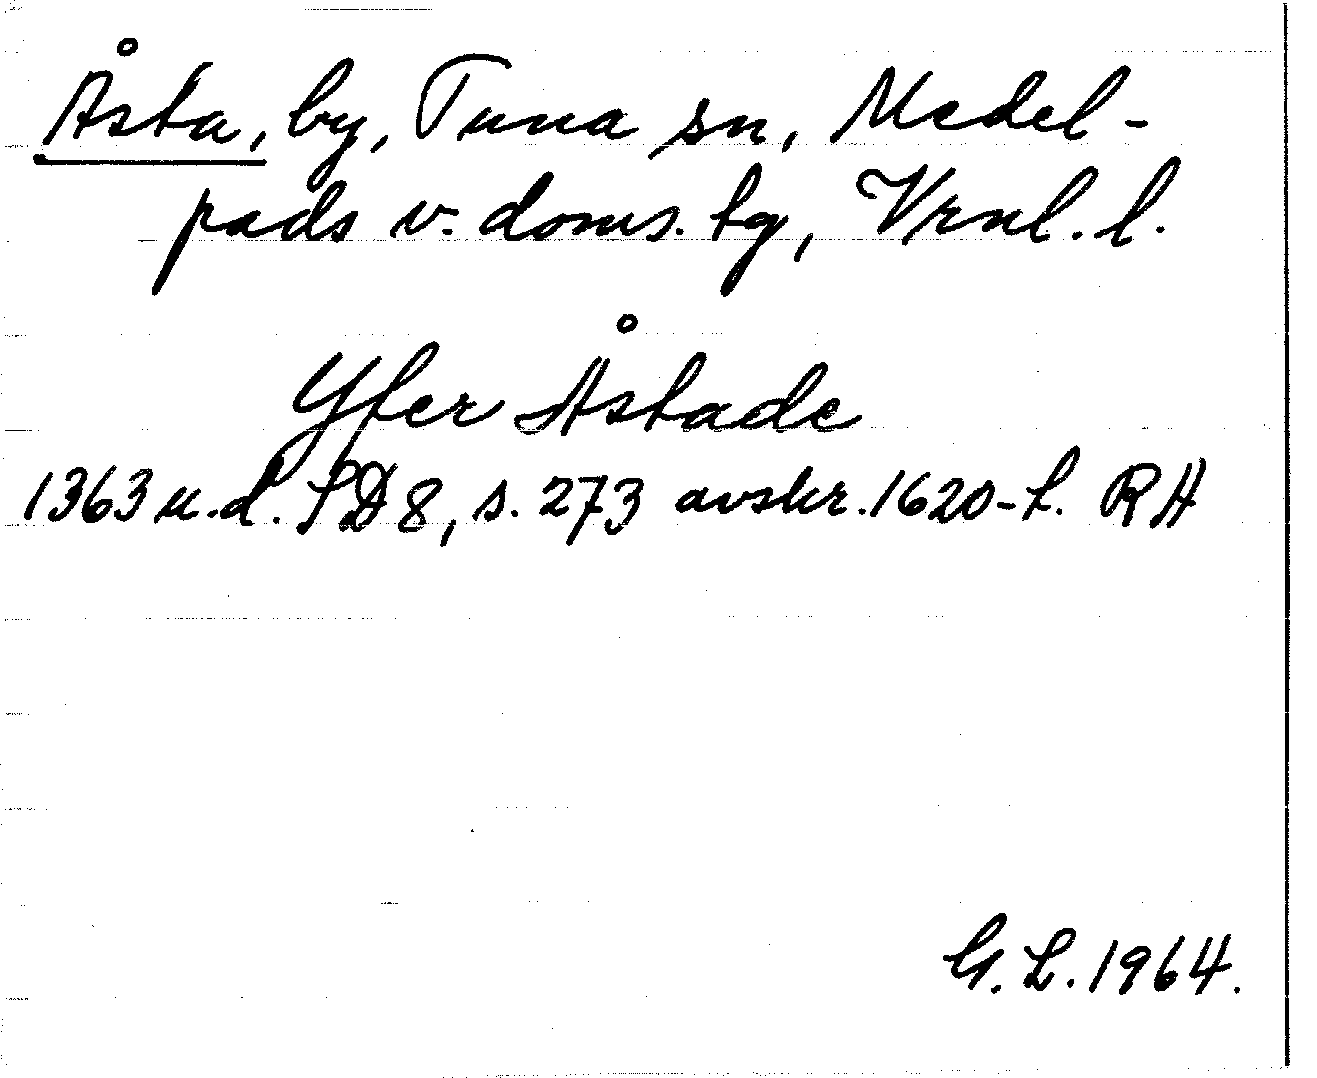 Åsta, by, Tuna sn, Medel-
pads v. doms. tg, Vrnl. l.
Yter Åstade
1363 u.d. SD 8, s. 273 avskr. 1620-t. RA
G. L. 1964.